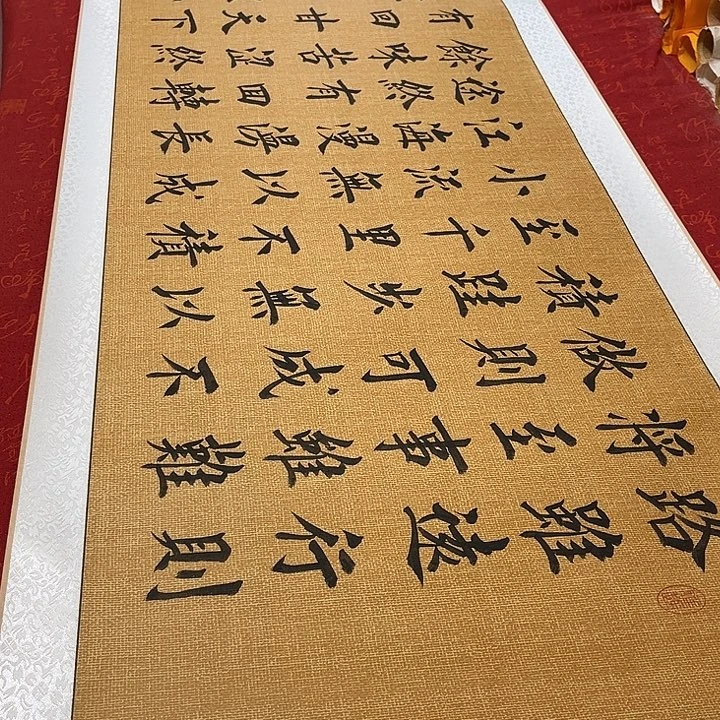 路雖遠行則
將至事雖難
做則可成不
積跬步無以
至千里不積
小流無以成
江海漫漫長
途然有回轉
餘味苦澀然
有回甘天下